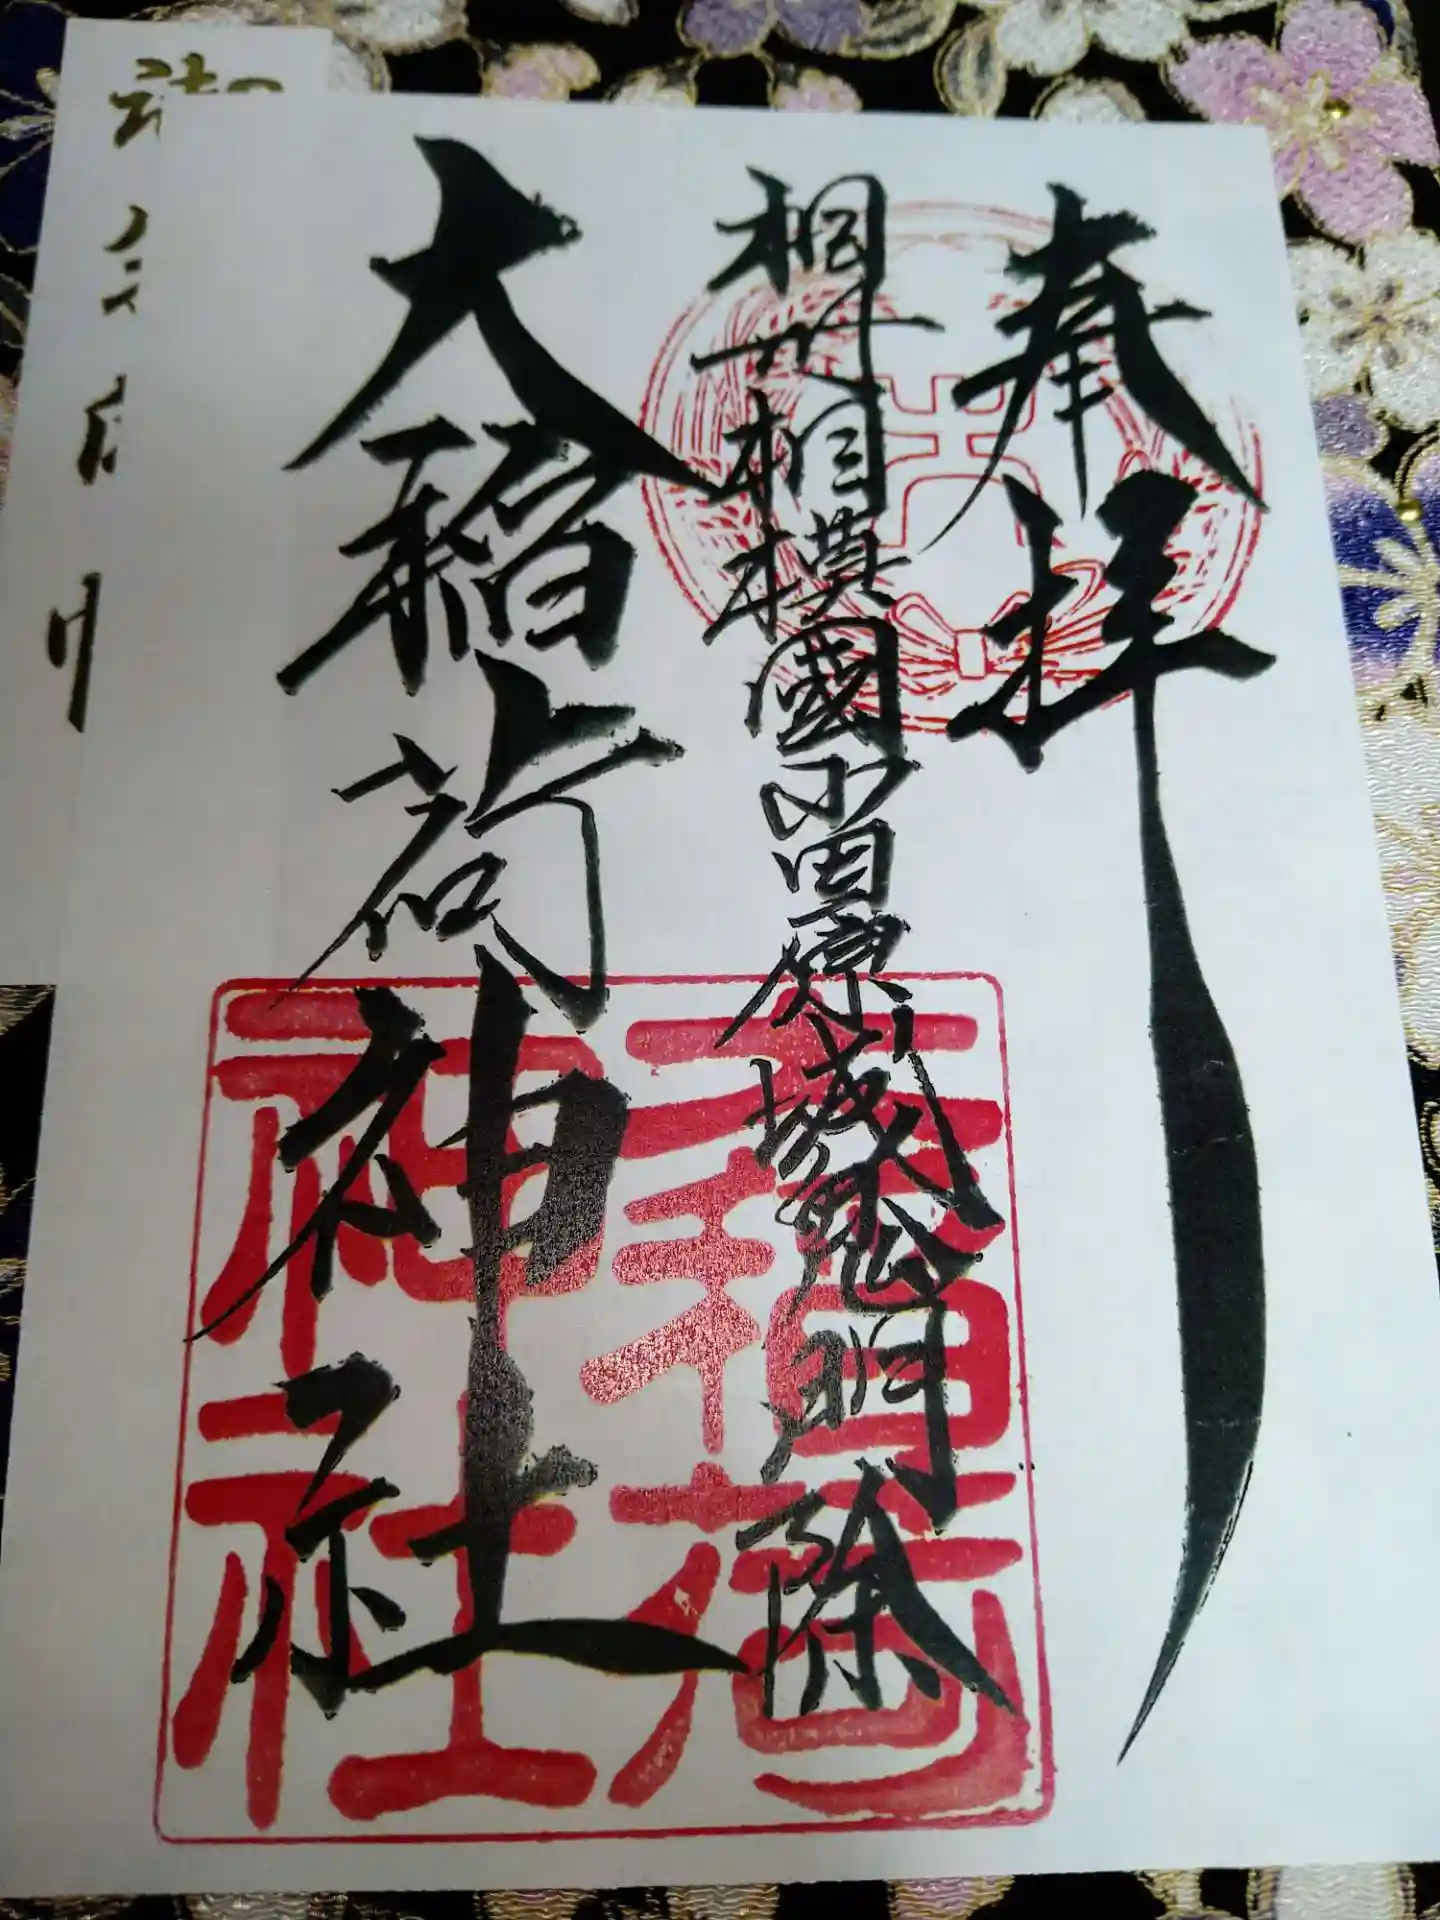 奉拝
相州相模國小田原城鬼門除
大稲荷神社
大稲荷
神社